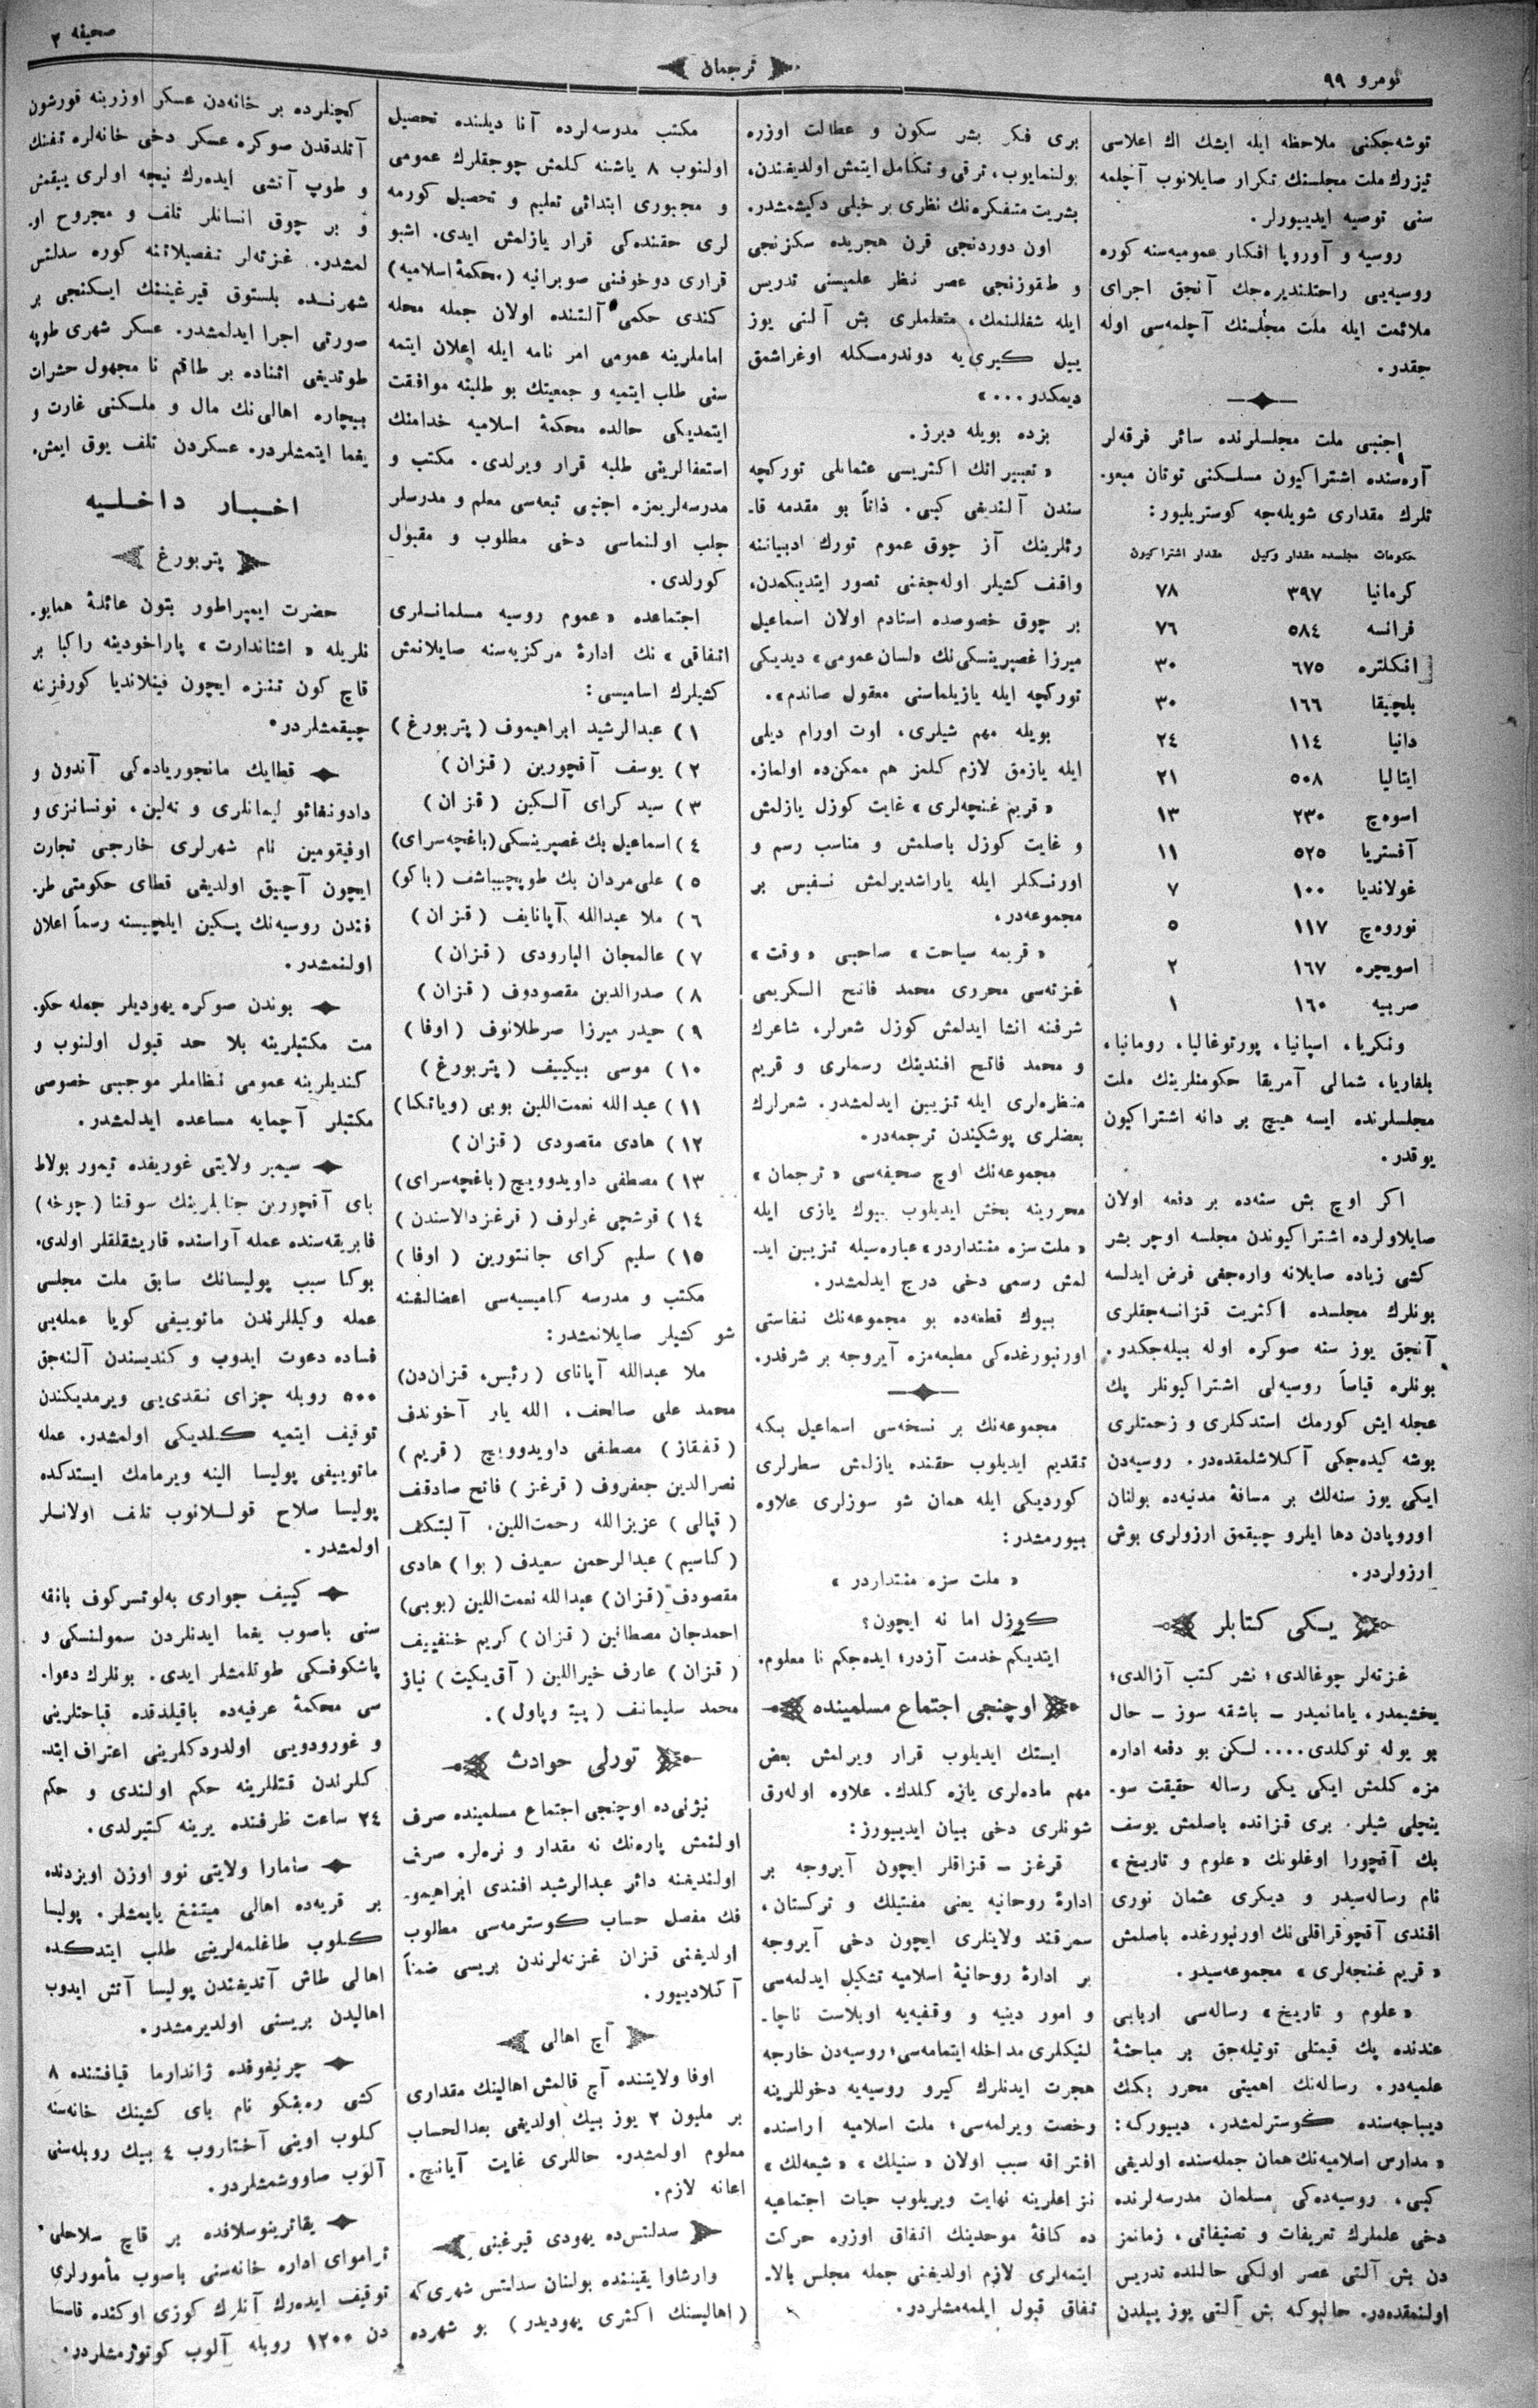 نومرو ٩٩
ترجمان
صحیفه ٢
توشه‌جکنی ملاحظه ایله ایشك اك اعلاسی
تیزرك ملت مجلسنك تکرار صایلانوب آچلمه
سنی توصیه ایدییورلر.
روسیه و آوروپا افکار عمومیه‌سنه کوره
روسیه‌یی راحتلندیره‌جك آنجق اجرای
ملائمت ایله ملت مجلسنك آچلمه‌سی اوله
جقدر.
اجنبی ملت مجلسلرنده سائر فرقه‌لر
آره‌سنده اشتراکیون مسلکنی توتان مبعو-
ثلرك مقداری شویله‌جه کوستریلیور:
حکومات مجلسده مقدار وکیل مقدار اشتراکیون
کرمانیا ٣٩٧ ٧٨
فرانسه ٥٨٤ ٧٦
انکلتره ٦٧٥ ٣٠
بلچیقا ١٦٦ ٣٠
دانیا ١١٤ ٢٤
ایتالیا ٥٠٨ ٢١
اسوه‌چ ٢٣٠ ١٣
آفستریا ٥٢٥ ١١
غولاندیا ١٠٠ ٧
نوروه‌چ ١١٧ ٥
اسویچره ١٦٧ ٢
صربیه ١٦٠ ١
ونکریا، اسپانیا، پورتوغالیا، رومانیا،
بلغاریا، شمالی آمریقا حکومتلرینك ملت
مجلسلرنده ایسه هیچ بر دانه اشتراکیون
یوقدر.
اکر اوچ بش سنه‌ده بر دفعه اولان
صایلاولرده اشتراکیوندن مجلسه اوچر بشر
کشی زیاده صایلانه واره‌جغی فرض ایدلسه
بونلرك مجلسده اکثریت قزانه‌جقلری
آنجق یوز سنه صوکره اوله بیله‌جکدر.
بونلره قیاساً روسیه‌لی اشتراکیونلر پك
عجله ایش کورمك استدکلری و زحمتلری
بوشه کیده‌جکی آکلاشلمقده‌در. روسیه‌دن
ایکی یوز سنه‌لك بر مسافهٔ مدنیه‌ده بولنان
اوروپادن دها ایلرو چیقمق ارزولری بوش
ارزولردر.
یکی کتابلر
غزته‌لر چوغالدی؛ نشر کتب آزالدی؛
یخشیمدر، یامانمیدر - باشقه سوز - حال
بو یوله توکلدی.... لکن بو دفعه اداره
مزه کلمش ایکی یکی رساله حقیقت سو-
ینجلی شیلر. بری قزانده باصلمش یوسف
بك آقچورا اوغلونك «علوم و تاریخ»
نام رساله‌سیدر و دیکری عثمان نوری
افندی آقچوقراقلی‌نك اورنبورغده باصلمش
«قریم غنچه‌لری» مجموعه‌سیدر.
«علوم و تاریخ» رساله‌سی اربابی
عندنده پك قیمتلی توتیله‌جق بر مباحثهٔ
علمیه‌در. رساله‌نك اهمیتی محرر بکك
دیباجه‌سنده کوسترلمشدر، دیییورکه:
«مدارس اسلامیه‌نك همان جمله‌سنده اولدیغی
کبی، روسیه‌ده‌کی مسلمان مدرسه‌لرنده
دخی علملرك تعریفات و تصنیفاتی، زمانمز
دن بش آلتی عصر اولکی حالنده تدریس
اولنمقده‌در. حالبوکه بش آلتی یوز ییلدن
بری فکر بشر سکون و عطالت اوزره
بولنمایوب، ترقی و تکامل ایتمش اولدیغندن،
بشریت متفکره‌نك نظری بر خیلی دکیشمشدر.
اون دوردنجی قرن هجریده سکزنجی
و طقوزنجی عصر نظر علمیسنی تدریس
ایله شغللنمك، متعلملری بش آلتی یوز
ییل کیری‌یه دوندرمکله اوغراشمق
دیمکدر...»
بزده بویله دیرز.
«تعبیراتك اکثریسی عثمانلی تورکچه
سندن آلندیغی کبی. ذاتاً بو مقدمه قا-
رئلرینك آز چوق عموم تورك ادبیاتنه
واقف کشیلر اوله‌جغنی تصور ایتدیکمدن،
بر چوق خصوصده استادم اولان اسماعیل
میرزا غصپرینسکی‌نك «لسان عمومی» دیدیکی
تورکچه ایله یازیلماسنی معقول صاندم».
بویله مهم شیلری، اوت اورام دیلی
ایله یازمق لازم کلمز هم ممکن‌ده اولماز.
«قریم غنچه‌لری» غایت کوزل یازلمش
و غایت کوزل باصلمش و مناسب رسم و
اورنکلر ایله یاراشدیرلمش نفیس بر
مجموعه‌در.
«قریمه سیاحت» صاحبی «وقت»
غزته‌سی محرری محمد فاتح الکریمی
شرفنه انشا ایدلمش کوزل شعرلر، شاعرك
و محمد فاتح افندینك رسملری و قریم
منظره‌لری ایله تزیین ایدلمشدر. شعرلرك
بعضلری پوشکیندن ترجمه‌در.
مجموعه‌نك اوچ صحیفه‌سی «ترجمان»
محررینه بخش ایدیلوب بیوك یازی ایله
«ملت سزه منتداردر» عباره‌سیله تزیین اید-
لمش رسمی دخی درج ایدلمشدر.
بیوك قطعه‌ده بو مجموعه‌نك نفاستی
اورنبورغده‌کی مطبعه‌مزه آیروجه بر شرفدر.
مجموعه‌نك بر نسخه‌سی اسماعیل بکه
تقدیم ایدیلوب حقنده یازلمش سطرلری
کوردیکی ایله همان شو سوزلری علاوه
بیورمشدر:
«ملت سزه منتداردر»
کوزل اما نه ایچون؟
ایتدیکم خدمت آزدر؛ ایده‌جکم نا معلوم.
اوچنجی اجتماع مسلمینده
ایستك ایدیلوب قرار ویرلمش بعض
مهم ماده‌لری یازه کلدك. علاوه اوله‌رق
شونلری دخی بیان ایدییورز:
قرغز - قزاقلر ایچون آیروجه بر
ادارهٔ روحانیه یعنی مفتیلك و ترکستان،
سمرقند ولایتلری ایچون دخی آیروجه
بر ادارهٔ روحانیهٔ اسلامیه تشکیل ایدلمه‌سی
و امور دینیه و وقفیه‌یه اوبلاست ناچا-
لنیکلری مداخله ایتمامه‌سی؛ روسیه‌دن خارجه
هجرت ایدنلرك کیرو روسیه‌یه دخوللرینه
رخصت ویرلمه‌سی؛ ملت اسلامیه اراسنده
افتراقه سبب اولان «سنیلك» «شیعه‌لك»
نزاعلرینه نهایت ویریلوب حیات اجتماعیه
ده کافهٔ موحدینك اتفاق اوزره حرکت
ایتمه‌لری لازم اولدیغنی جمله مجلس بالا-
تفاق قبول ایلمه‌مشلردر.
مکتب مدرسه‌لرده آنا دیلنده تحصیل
اولنوب ٨ یاشنه کلمش چوجقلرك عمومی
و مجبوری ابتدائی تعلیم و تحصیل کورمه
لری حقنده‌کی قرار یازلمش ایدی. اشبو
قراری دوخوفنی صوبرانیه (محکمهٔ اسلامیه)
کندی حکمی آلتنده اولان جمله محله
اماملرینه عمومی امر نامه ایله إعلان ایتمه
سنی طلب ایتمیه و جمعیتك بو طلبنه موافقت
ایتمدیکی حالده محکمهٔ اسلامیه خدامنك
استعفالرینی طلبه قرار ویرلدی. مکتب و
مدرسه‌لریمزه اجنبی تبعه‌سی معلم و مدرسلر
جلب اولنماسی دخی مطلوب و مقبول
کورلدی.
اجتماعده «عموم روسیه مسلمانلری
اتفاقی» نك ادارهٔ مرکزیه‌سنه صایلانمش
کشیلرك اسامیسی:
١) عبدالرشید ابراهیموف (پتربورغ)
٢) یوسف آقچورین (قزان)
٣) سید کرای آلکین (قزان)
٤) اسماعیل بك غصپرینسکی (باغچه‌سرای)
٥) علی‌مردان بك طوپچیباشف (باکو)
٦) ملا عبدالله آپانایف (قزان)
٧) عالمجان البارودی (قزان)
٨) صدرالدین مقصودوف (قزان)
٩) حیدر میرزا صرطلانوف (اوفا)
١٠) موسی بیکییف (پتربورغ)
١١) عبدالله نعمت‌اللین بوبی (ویاتکا)
١٢) هادی مقصودی (قزان)
١٣) مصطفی داویدوویچ (باغچه‌سرای)
١٤) قوشچی غولوف (قرغزدالاسندن)
١٥) سلیم کرای جانتورین (اوفا)
مکتب و مدرسه کامیسیه‌سی اعضالغنه
شو کشیلر صایلانمشدر:
ملا عبدالله آپانای (رئیس، قزان‌دن)
محمد علی صالحف، الله یار آخوندف
(قفقاز) مصطفی داویدوویچ (قریم)
نصرالدین جعفروف (قرغز) فاتح صادقف
(قپالی) عزیزالله رحمت‌اللین،
(کاسیم) عبدالرحمن سعیدف (بوا) هادی
مقصودف (قزان) عبدالله نعمت‌اللین (بوبی)
احمدجان مصطافین (قزان) کریم خنفییف
(قزان) عارف خیراللین (آق‌یکیت) نیاز
محمد سلیمانف (پیتروپاول).
تورلی حوادث
نیژنی‌ده اوچنجی اجتماع مسلمینده صرف
اولنمش پاره‌نك نه مقدار و نره‌لره صرف
اولندیغنه دائر عبدالرشید افندی ابراهیمو-
فك مفصل حساب کوسترمه‌سی مطلوب
اولدیغنی قزان غزته‌لرندن بریسی ضمناً
آکلادییور.
آچ اهالی
اوفا ولایتنده آچ قالمش اهالینك مقداری
بر ملیون ٢ یوز بیك اولدیغی بعدالحساب
معلوم اولمشدر. حاللری غایت آیانچ.
اعانه لازم.
سدلتس‌ده یهودی قیرغینی
وارشاوا یقیننده بولنان سدلتس شهری‌که
(اهالیسنك اکثری یهودیدر) بو شهرده
کچنلرده بر خانه‌دن عسکر اوزرینه قورشون
آتلدقدن صوکره عسکر دخی خانه‌لره تفنك
و طوپ آتشی ایده‌رك نیچه اولری ییقمش
و بر چوق انسانلر تلف و مجروح او-
لمشدر. غزته‌لر تفصیلاتنه کوره سدلتس
شهرنده بلستوق قیرغیننك ایکنجی بر
صورتی اجرا ایدلمشدر. عسکر شهری طوپه
طوتدیغی اثناده بر طاقم نا مجهول حشرات
بیچاره اهالی‌نك مال و ملکنی غارت و
یغما ایتمشلردر. عسکردن تلف یوق ایمش.
اخبار داخلیه
پتربورغ
حضرت ایمپراطور بتون عائلهٔ همایو-
نلریله «اشتاندارت» پاراخودینه راکبا بر
قاچ کون تنزه ایچون فینلاندیا کورفزینه
چیقمشلردر.
قطایك مانجوریاده‌کی آندون و
دادونغائو لیمانلری و نه‌لین، نونسانزی و
اوفیقومین نام شهرلری خارجی تجارت
ایچون آچیق اولدیغی قطای حکومتی طر-
فندن روسیه‌نك پکین ایلچیسنه رسماً اعلان
اولنمشدر.
بوندن صوکره یهودیلر جمله حکو-
مت مکتبلرینه بلا حد قبول اولنوب و
کندیلرینه عمومی نظاملر موجبی خصوصی
مکتبلر آچمایه مساعده ایدلمشدر.
سیمبر ولایتی غوریفده تیمور بولاط
بای آقچورین جنابلرینك سوقنا (چوخه)
فابریقه‌سنده عمله آراسنده قاریشقلقلر اولدی.
بوکا سبب پولیسانك سابق ملت مجلسی
عمله وکیللرندن ماتوییفی کویا عمله‌یی
فساده دعوت ایدوب و کندیسندن آلنه‌جق
٥٠٠ روبله جزای نقدی‌یی ویرمدیکندن
توقیف ایتمیه کلدیکی اولمشدر. عمله
ماتوییفی پولیسا الینه ویرمامك ایستدکده
پولیسا صلاح قوللانوب تلف اولانلر
اولمشدر.
کییف جواری به‌لوتسرکوف بانقه
سنی باصوب یغما ایدنلردن سمولنسکی و
پاشکوفسکی طوتلمشلر ایدی. بونلرك دعوا-
سی محکمهٔ عرفیه‌ده باقیلدقده قباحتلرینی
و غورودویی اولدردکلرینی اعتراف ایتد-
کلرندن قتللرینه حکم اولندی و حکم
٢٤ ساعت ظرفنده یرینه کتیرلدی.
سامارا ولایتی نوو اوزن اویزدنده
بر قریه‌ده اهالی میتنغ یاپمشلر. پولیسا
کلوب طاغلمه‌لرینی طلب ایتدکده
اهالی طاش آتدیغندن پولیسا آتش ایدوب
اهالیدن بریسنی اولدیرمشدر.
چرنیغوفده ژاندارما قیافتنده ٨
کشی ره‌بقکو نام بای کشینك خانه‌سنه
کلوب اوینی آختاروب ٤ بیك روبله‌سنی
آلوب صاووشمشلردر.
یقاترینوسلافده بر قاچ سلاحلی
تراموای اداره خانه‌سنی باصوب مأمورلری
توقیف ایده‌رك آنلرك کوزی اوکنده قاسسا
دن ١٢٠٠ روبله آلوب کوتورمشلردر.